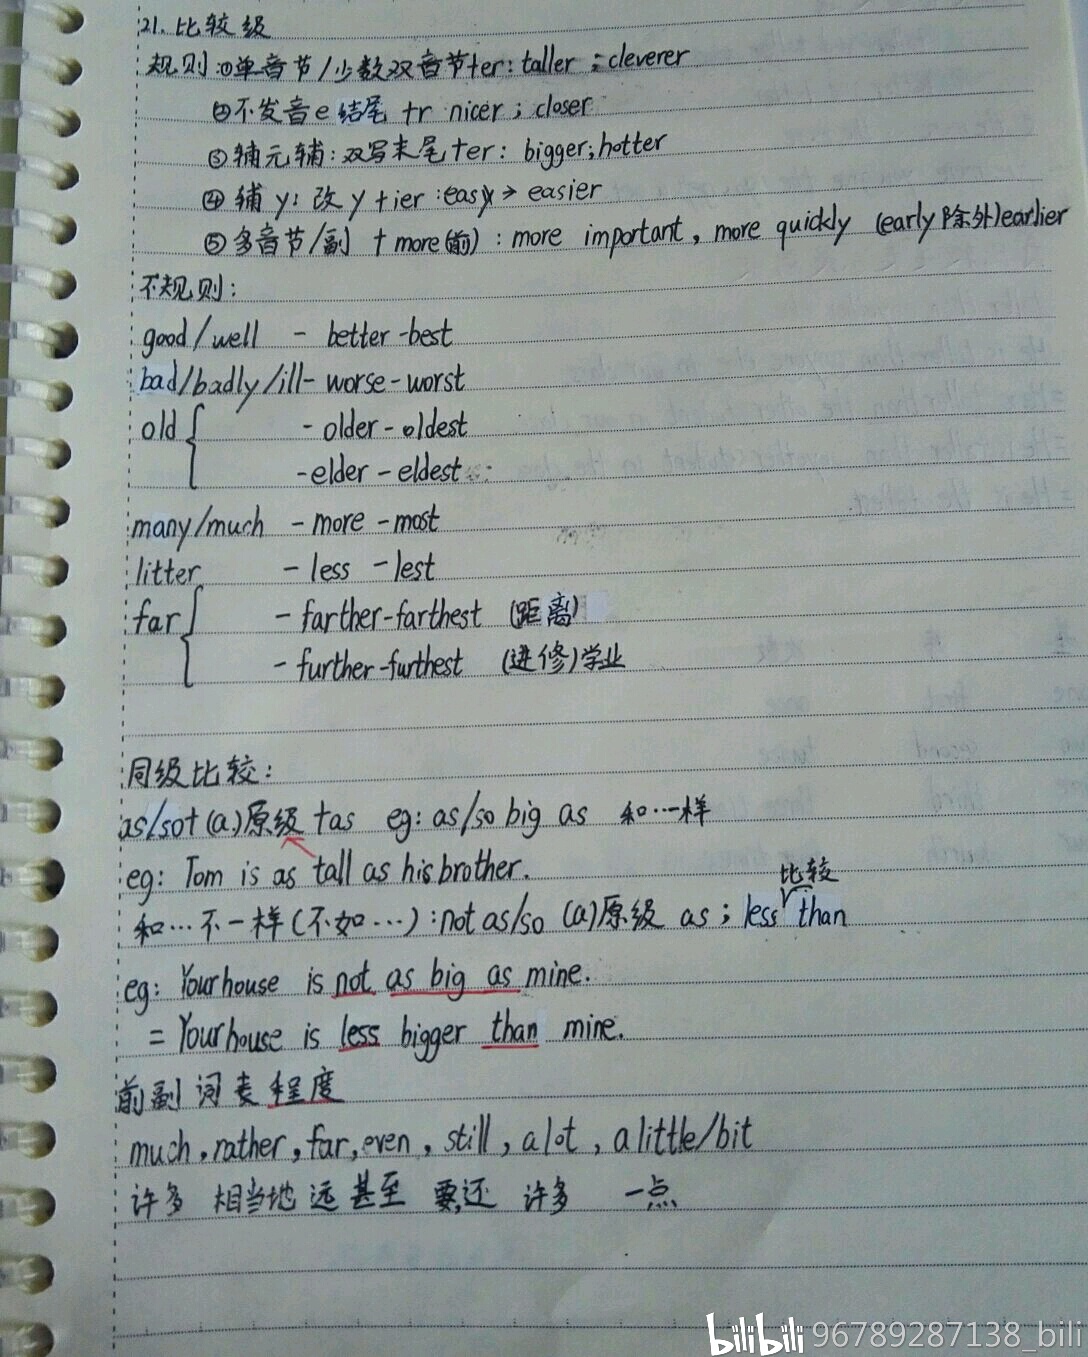 21. 比较级
规则:①单音节/少数双音节+er: taller ; cleverer
②不发音e结尾 +r nicer ; closer
③辅元辅: 双写末尾+er: bigger; hotter
④辅y: 改y+ier :easy→easier
⑤多音节/副 + more(前) : more important, more quickly (early除外)earlier
不规则:
good/well - better -best
bad/badly/ill- worse-worst
old { - older - oldest
-elder - eldest
many/much - more -most
litter - less - lest
far { - farther-farthest (距离)
- further-furthest (进修)学业
同级比较:
as/so+(a)原级+as eg: as/so big as 和…一样
eg: Tom is as tall as his brother.
比较
和…不一样(不如…):not as/so (a)原级 as ; less than
eg: Your house is not as big as mine.
= Your house is less bigger than mine.
前副词表程度
much, rather, far, even, still, a lot, a little/bit
许多 相当地 远 甚至 更,还 许多 一点
bilibili 96789287138_bili